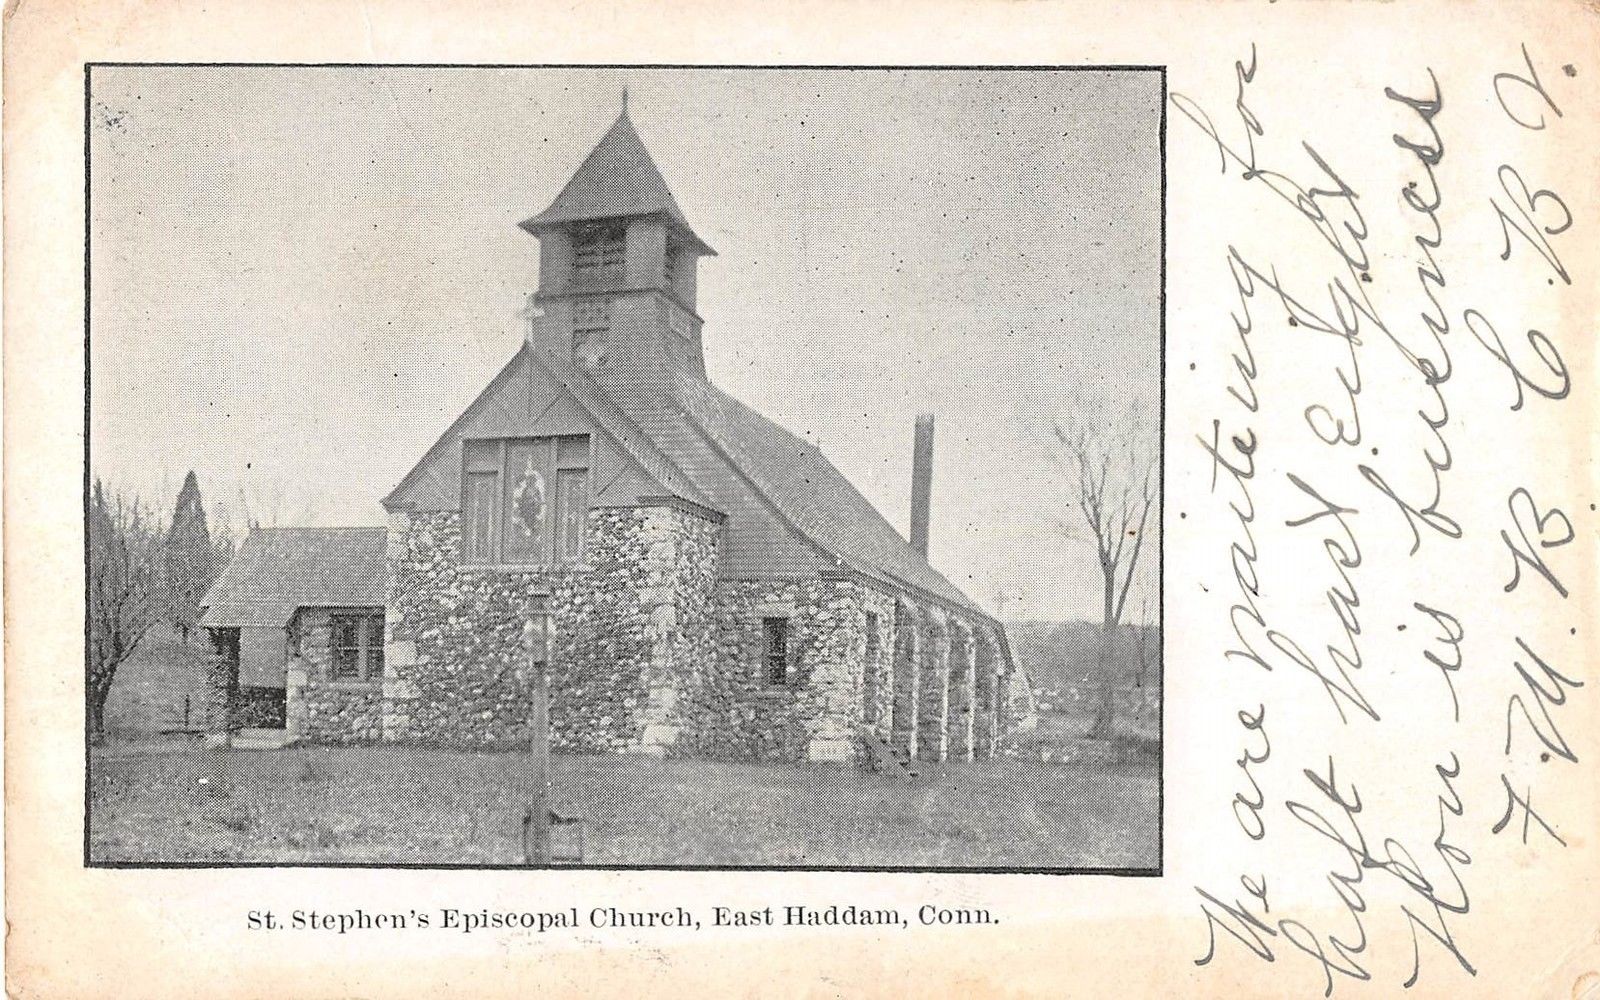 St. Stephen's Episcopal Church, East Haddam, Conn.
We are waiteing for
haft hast Eight
How is buieness
F. M. B. C. B.